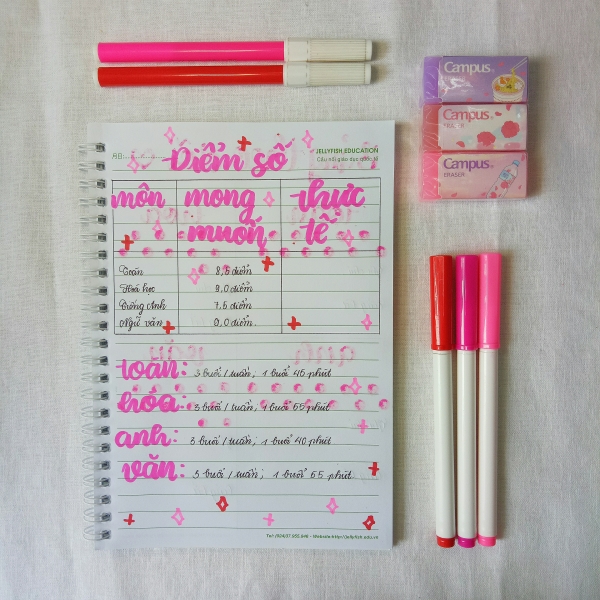 Campus
Campus
ERASER
Campus
ERASER
JELLYFISH EDUCATION
Cầu nối giáo dục quốc tế
Điểm số
môn mong muốn thực tế
Toán 8,5 điểm
Hoá học 8,0 điểm
Tiếng Anh 7,5 điểm
Ngữ văn 9,0 điểm.
toán: 3 buổi / tuần; 1 buổi 45 phút
hóa: 3 buổi / tuần; 1 buổi 55 phút
anh: 3 buổi / tuần; 1 buổi 40 phút
văn: 3 buổi / tuần; 1 buổi 65 phút